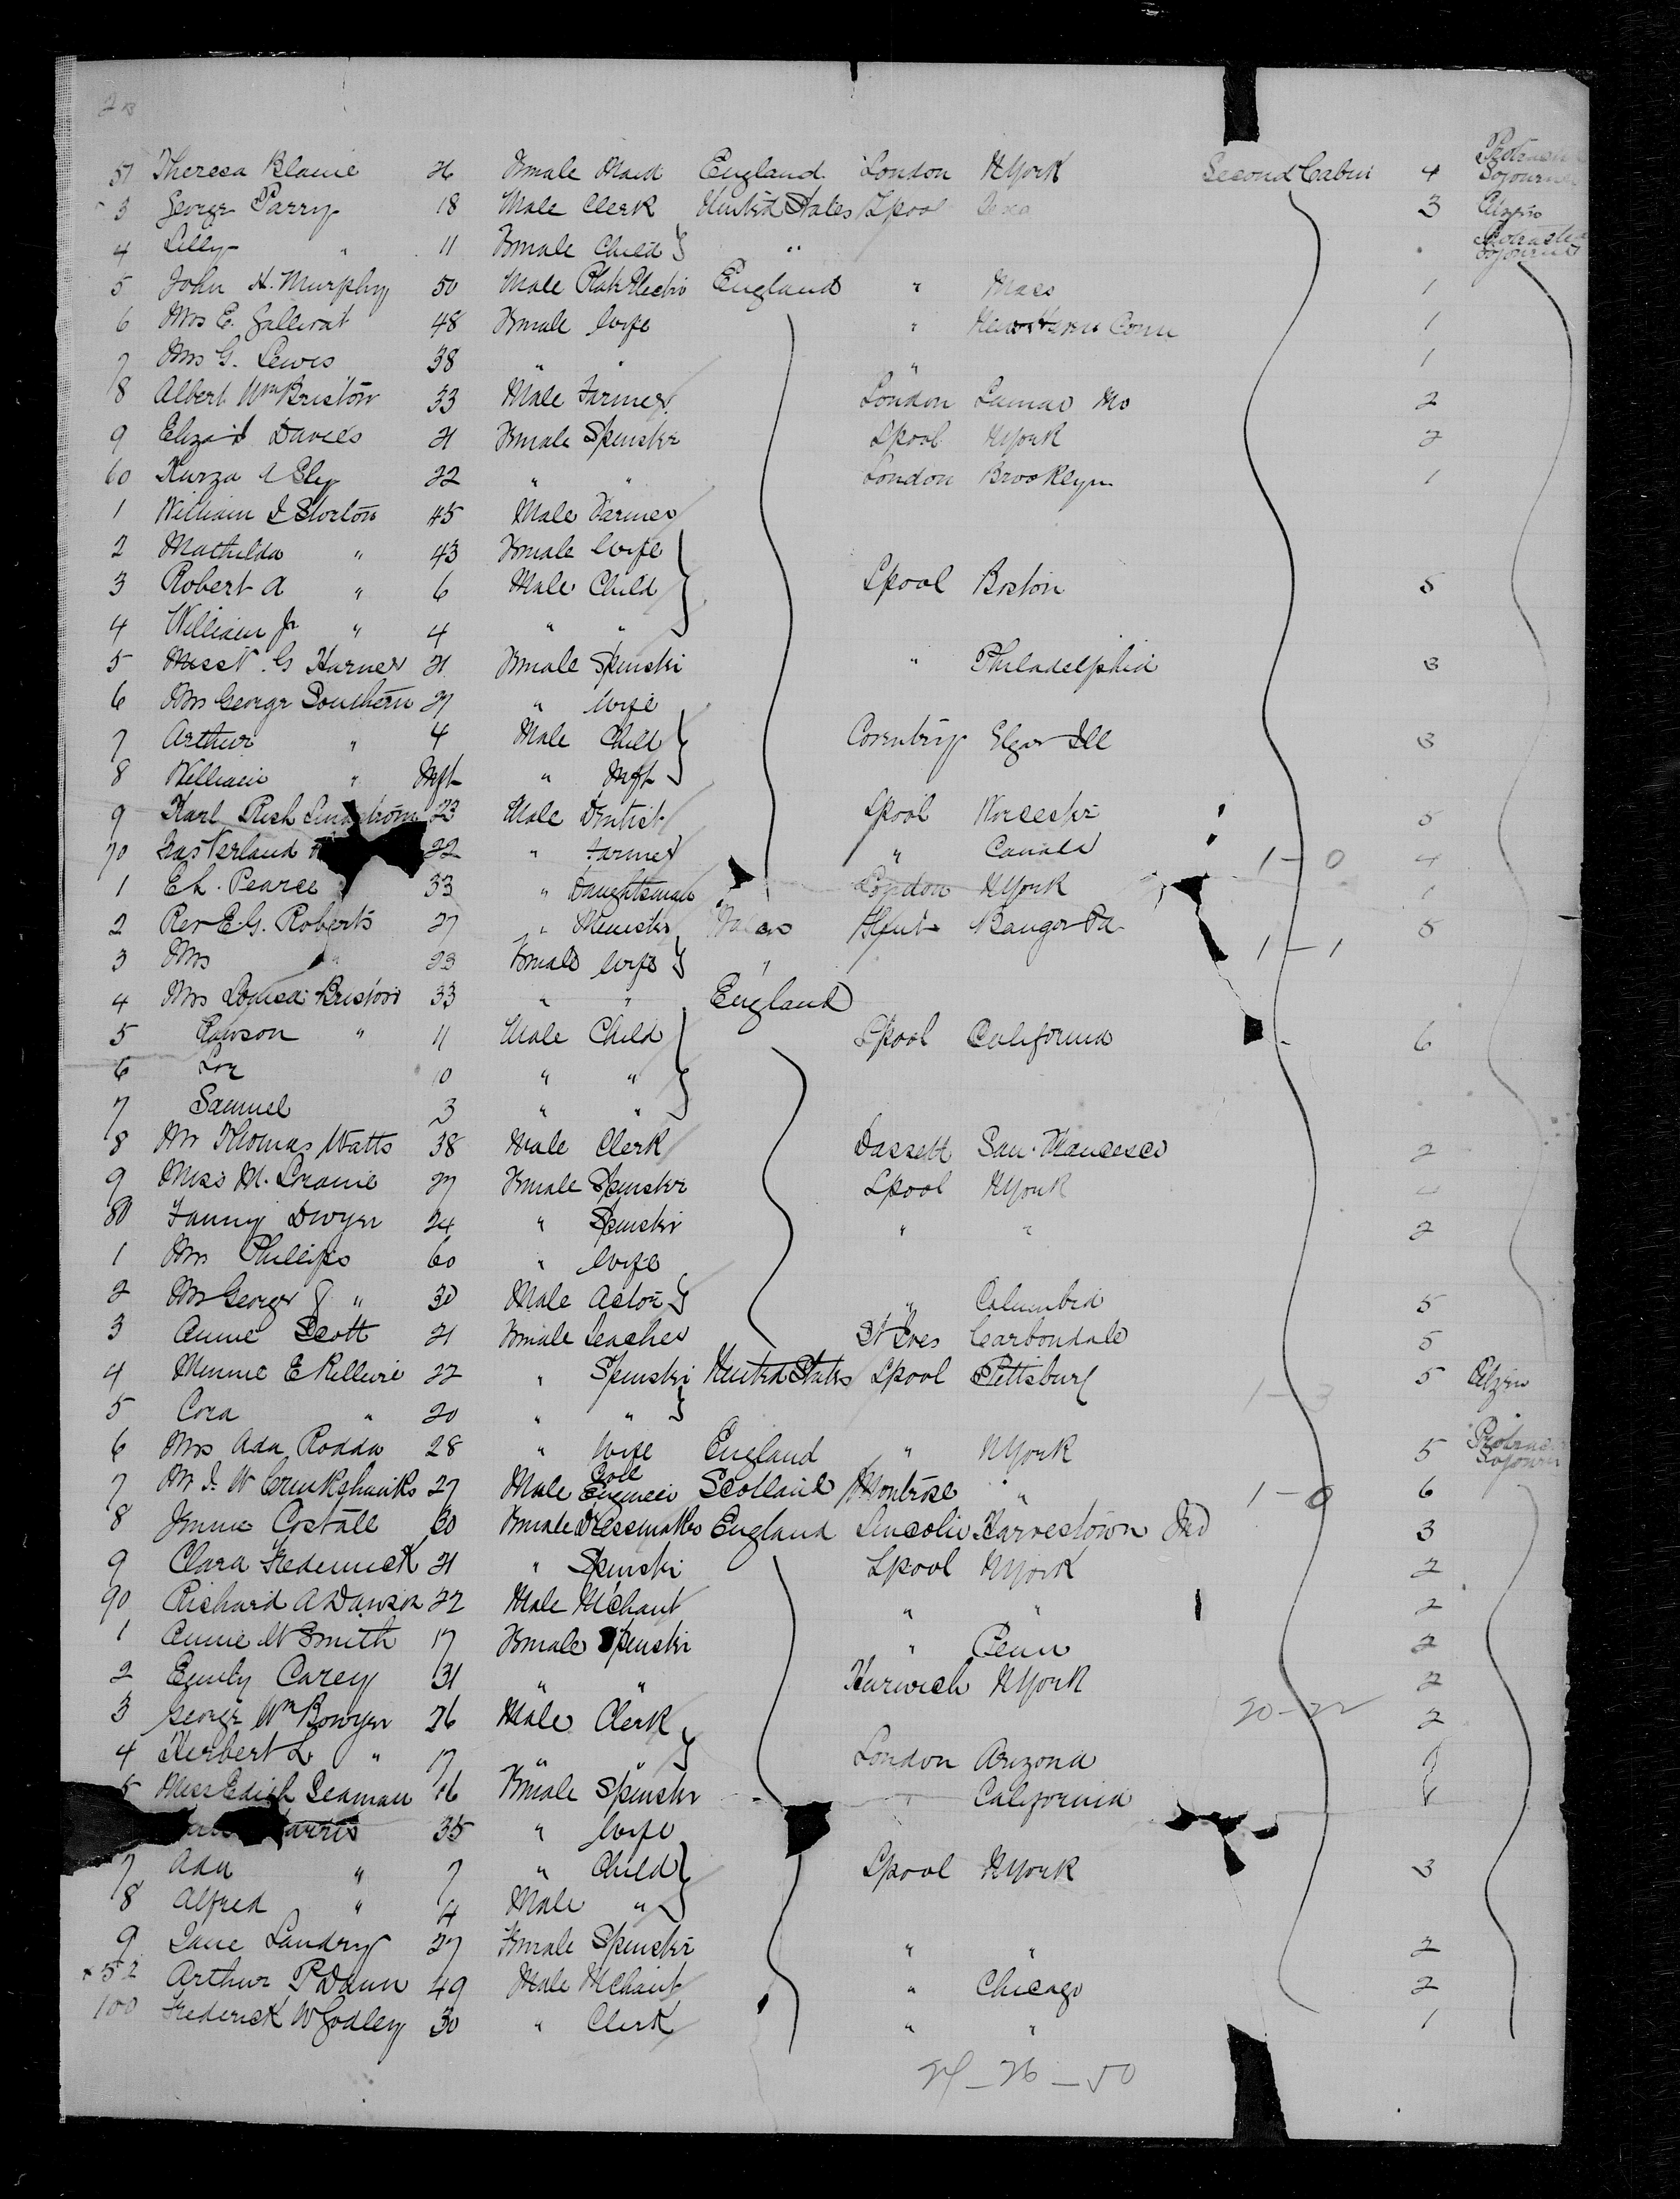 51 Theresa Blaine 26 Female Maid England London NYork Second Cabin 4 Protracted Sojourn
3 George Parry 18 Male Clerk United States Lpool 3 Citizen
4 Lilly " 11 Female Child " Protracted Sojourn
5 John H. Murphy 50 Male England " Mass 1
6 Mrs E. 48 Female Wife " New Haven Conn 1
7 Mrs G. Lewis 38 " " " 1
8 Albert Wm Bristow 33 Male Farmer London Lamar Mo 2
9 Eliza J Davies 21 Female Spinster Lpool NYork 2
60 A Sley 22 " " London Brooklyn 1
1 William J Storton 45 Male Farmer
2 Mathilda " 43 Female Wife
3 Robert A " 6 Male Child Lpool Boston 5
4 William Jr " 4 " "
5 Miss G 21 Female Spinster " Philadelphia 3
6 Mrs George Southern 27 " Wife
7 Arthur " 4 Male Child Coventry Ill 3
8 William " Inft " Inft
9 Karl 23 Male Dentist Lpool Worcester 5
70 22 " Farmer " Canada 1-0 4
1 E L. Pearce 33 " Draughtsman London NYork 1
2 Rev E. G. Roberts 27 " Minister Wales Bangor Pa 5
3 Mrs " 23 Female Wife " 1-1
4 Mrs Louisa Bristow 33 " " England
5 Rawson " 11 Male Child Lpool California 6
6 10 " "
7 Samuel 3 " "
8 Mr Thomas Watts 38 Male Clerk Dassett San Francisco 2
9 Miss M. Loraine 27 Female Spinster Lpool NYork
80 Fanny Dwyer 24 " Spinster " " 2
1 Mrs Phillips 60 " Wife
2 Mr George " 30 Male Actor " Columbia 5
3 Annie Scott 21 Female Teacher St Ives Carbondale 5
4 Minnie E 22 " Spinster United States Lpool Pittsburg 1-3 5 Citizen
5 Cora " 20 " "
6 Mrs Ada Rodda 28 " Wife England " NYork 5 Protracted Sojourn
7 Mr J. W Cruikshanks 27 Male Engineer Scotland Montrose " 1-0 6
8 30 Female Dressmaker England Lincoln 3
9 Clara Frederick 21 " Spinster Lpool NYork 2
90 Richard A Dawson 22 Male Mchant " " 2
1 Annie W Smith 17 Female Spinster " Penn 2
2 Emily Carey 31 " " Harwich NYork 2
3 George Wm Bowyer 26 Male Clerk 20-22 2
4 Herbert L " 17 " " London Arizona
5 Miss Edith Seaman 16 Female Spinster " California
Harris 35 " Wife
7 Ada " 7 " Child Lpool NYork 3
8 Alfred " 4 Male "
9 Jane Landry 27 Female Spinster " " 2
x 52 Arthur P Dann 49 Male Mchant " Chicago 2
100 Frederick W Godley 30 " Clerk " " 1
24-26-50